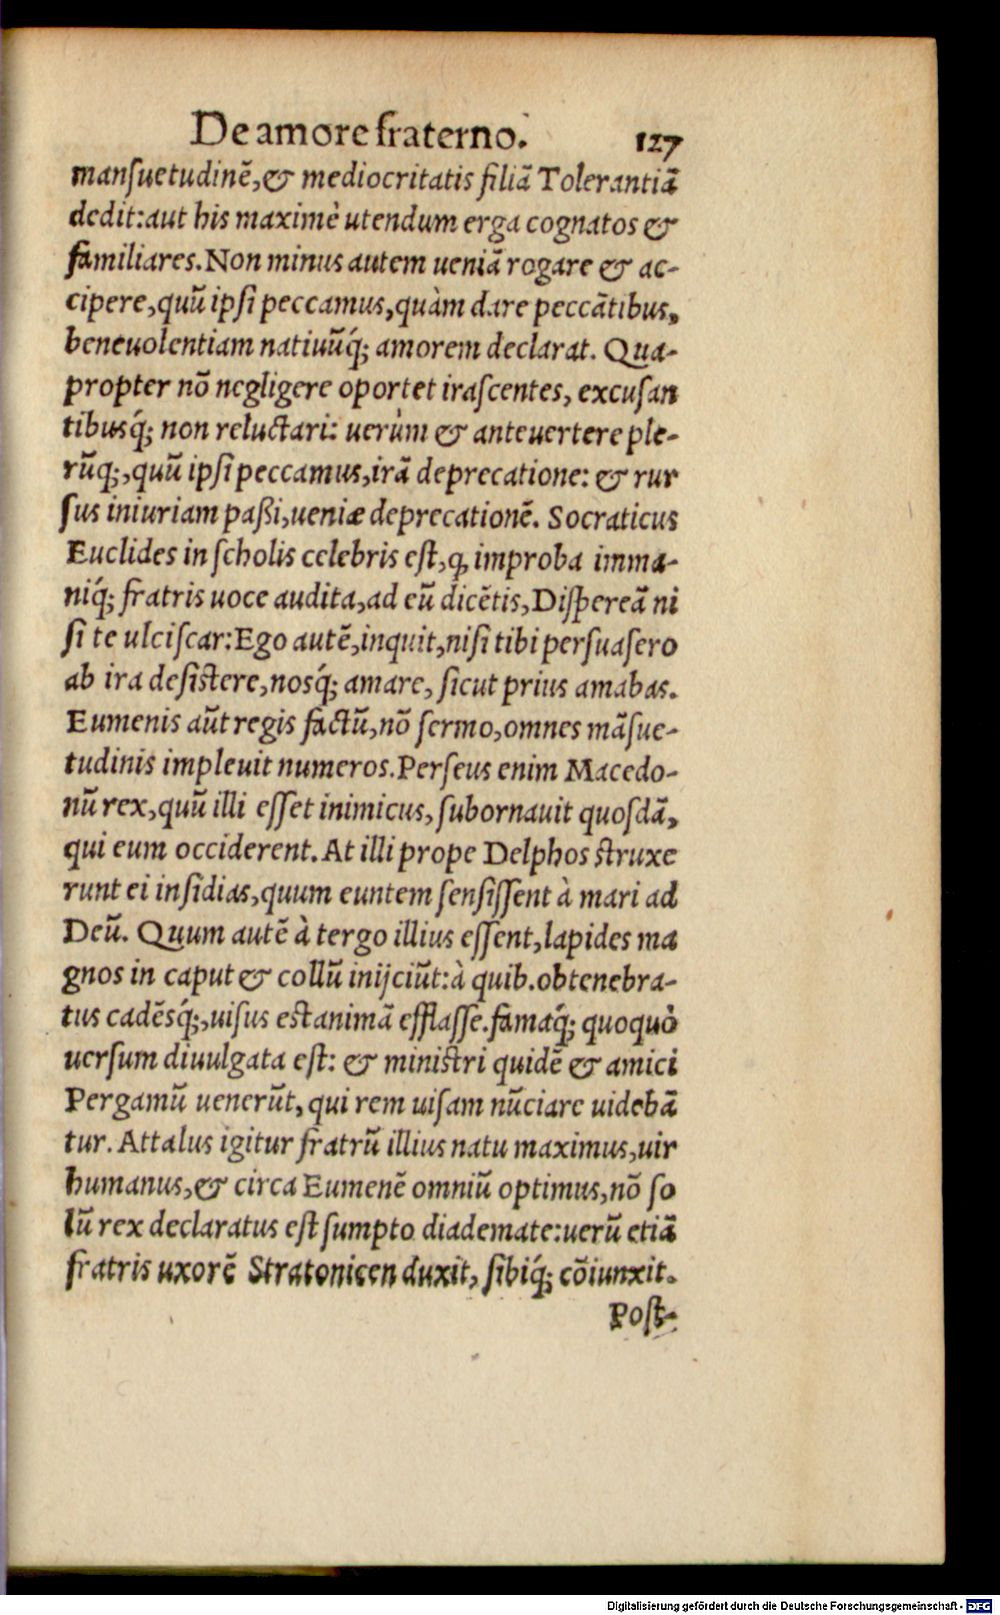 De amore fraterno. 127
manſuetudinē,& mediocritatis filiā Tolerantiā
dedit:aut his maximè utendum erga cognatos &
familiares.Non minus autem ueniā rogare & ac-
cipere,quū ipſi peccamus,quàm dare peccātibus,
beneuolentiam natiuūq́; amorem declarat. Qua-
propter nō negligere oportet iraſcentes, excuſan
tibusq́; non reluctari: uerùm & anteuertere ple-
rūq;,quū ipſi peccamus,irā deprecatione: & rur
ſus iniuriam paßi,ueniæ deprecationē. Socraticus
Euclides in ſcholis celebris eſt,ꝙ improba imma-
niq́; fratris uoce audita,ad eū dicētis,Diſpereā ni
ſi te ulciſcar:Ego autē,inquit,niſi tibi perſuaſero
ab ira deſiſtere,nosq́; amare, ſicut prius amabas.
Eumenis aūt regis factū,nō ſermo,omnes māſue-
tudinis impleuit numeros.Perſeus enim Macedo-
nū rex,quū illi eſſet inimicus,ſubornauit quoſdā,
qui eum occiderent.At illi prope Delphos ſtruxe
runt ei inſidias,quum euntem ſenſiſſent à mari ad
Deū. Quum autē à tergo illius eſſent,lapides ma
gnos in caput & collū inijciūt:à quib.obtenebra-
tus cadēsq́;,uiſus eſt animā efflaſſe.famaq́; quoquò
uerſum diuulgata eſt: & miniſtri quidē & amici
Pergamū uenerūt, qui rem uiſam nūciare uidebā
tur. Attalus igitur fratrū illius natu maximus,uir
humanus,& circa Eumenē omniū optimus,nō ſo
lū rex declaratus eſt ſumpto diademate:uerū etiā
fratris uxorē Stratonicen duxit, ſibiq́; cōiunxit.
Poſt-
Digitalisierung gefördert durch die Deutsche Forschungsgemeinschaft - DFG